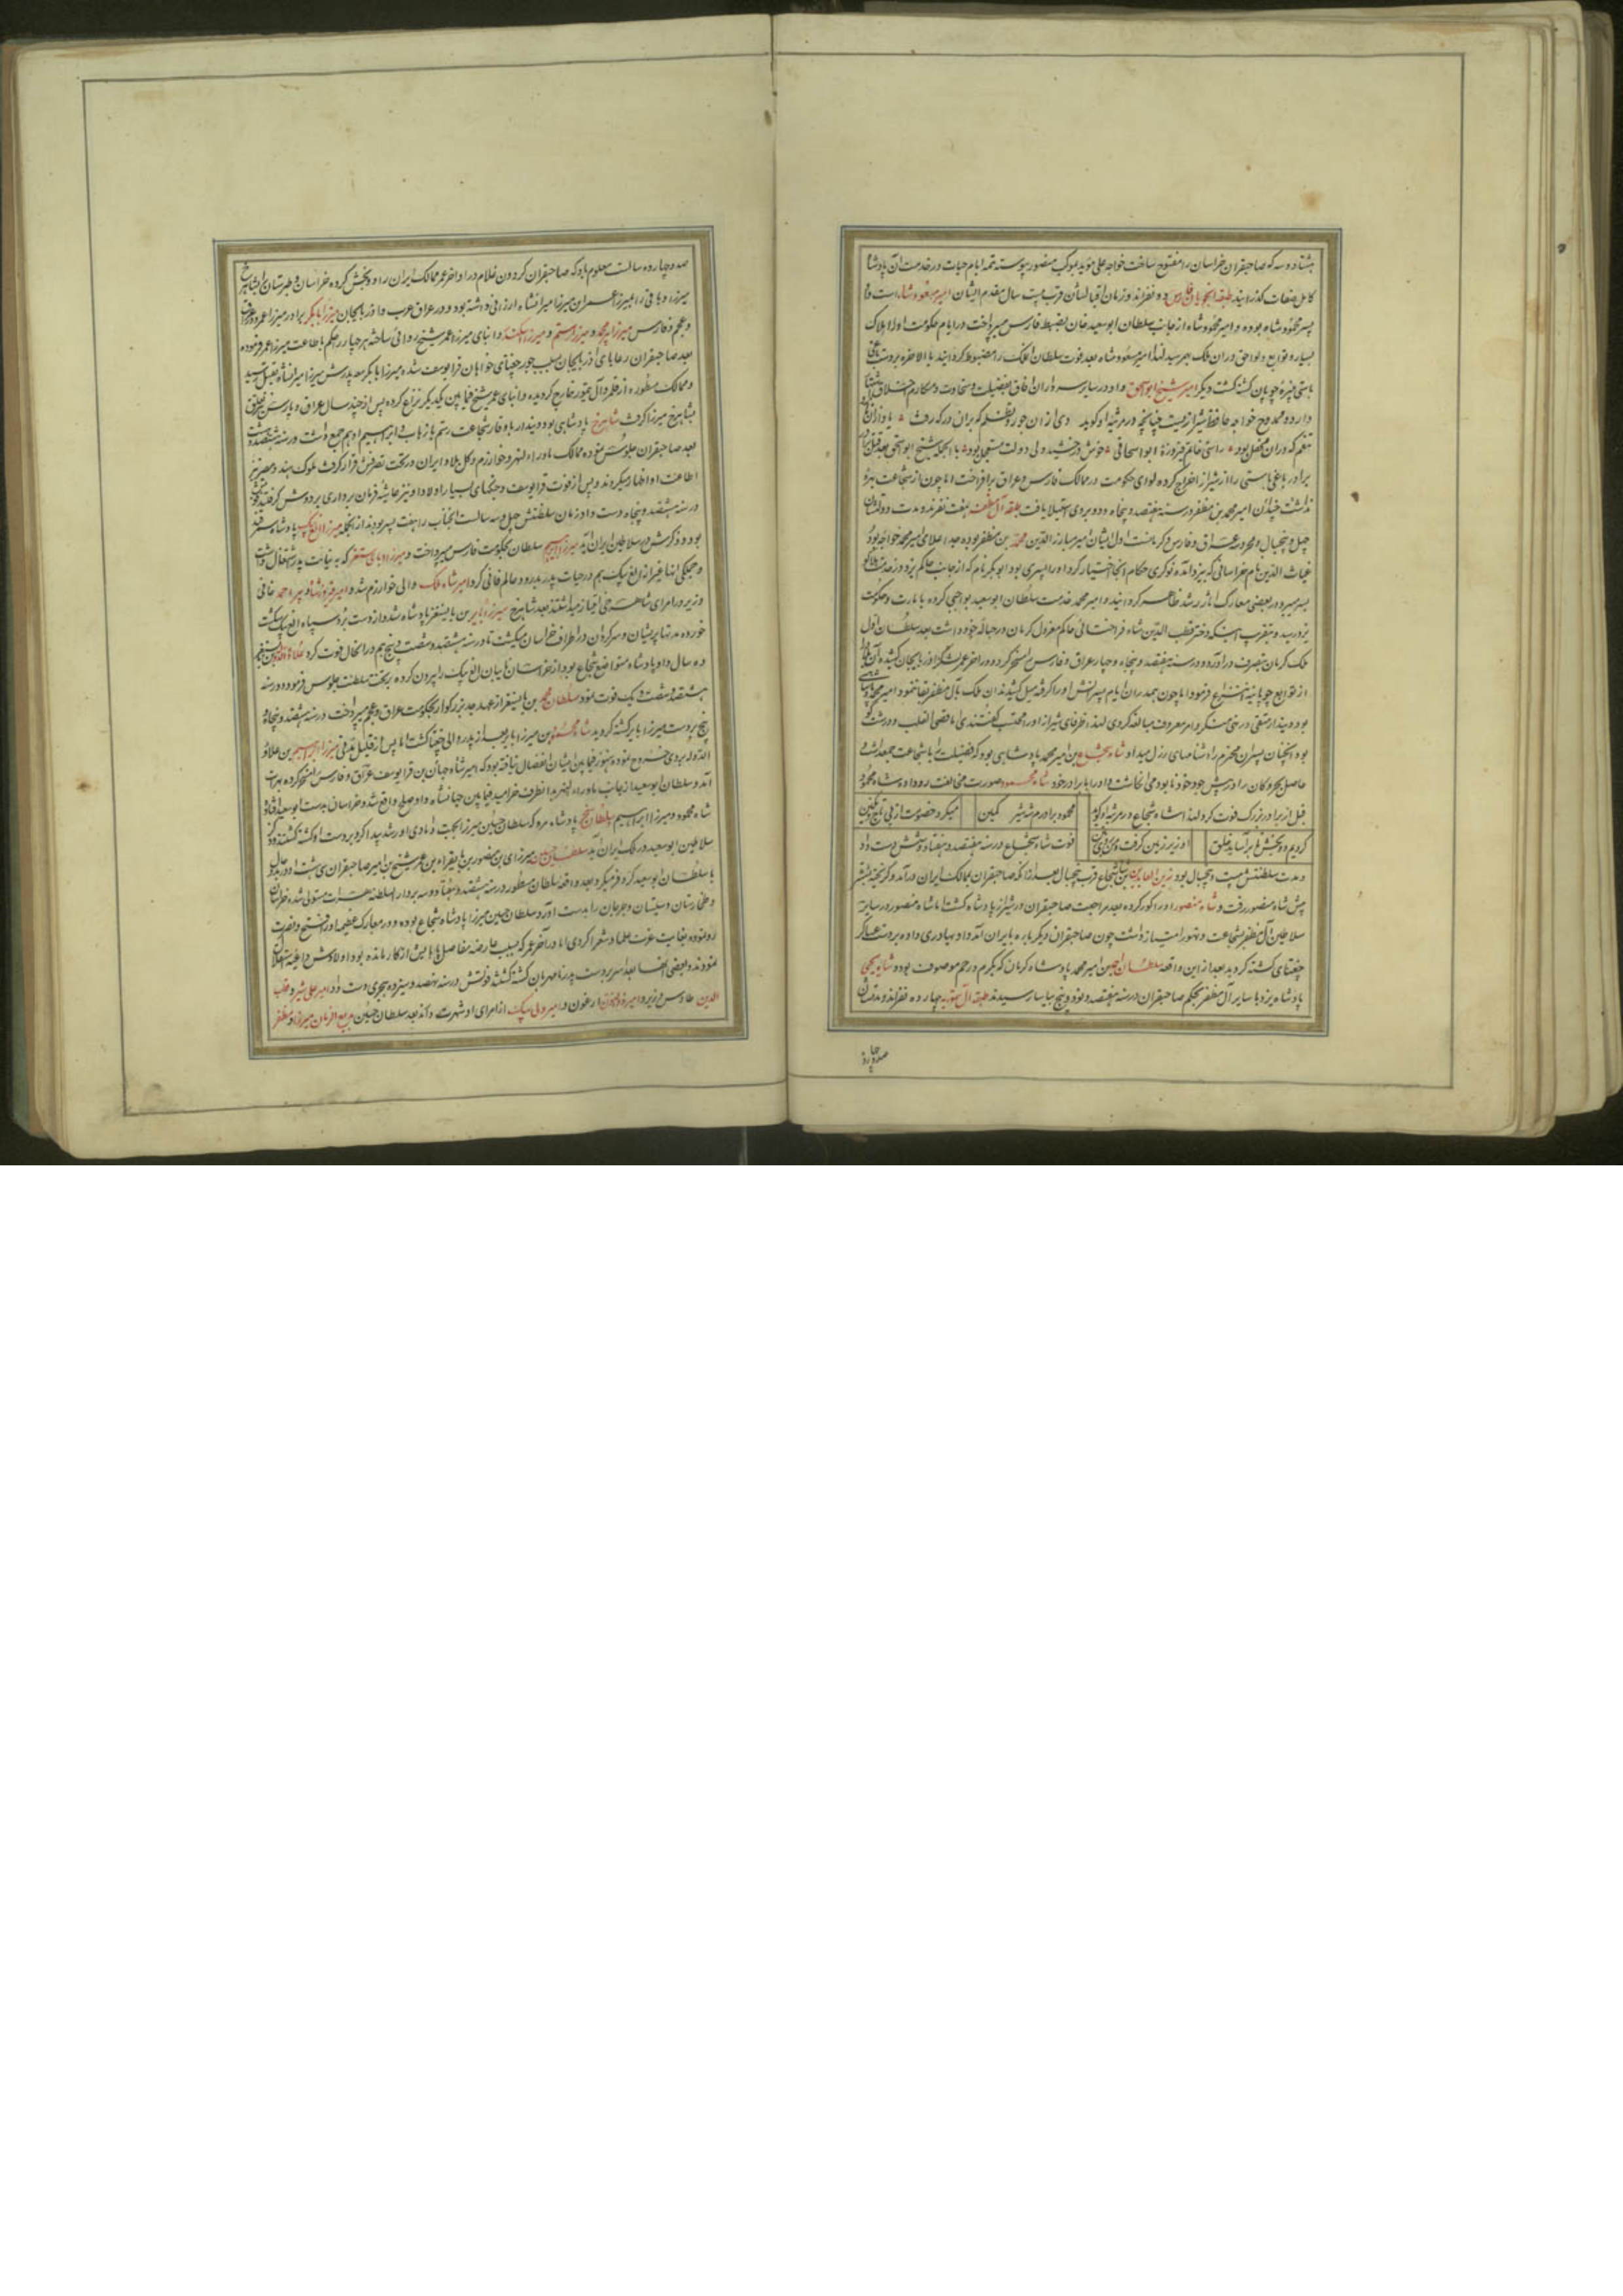 هشتاد و سه که صاحبقران خراسان را مفتوح ساخت خواجه علی مؤید بموکب منصور پیوسته تتمه ایام حیات در خدمت آن پادشاه
کامل صفات گذرانید طبقه اینجو بفارس دو نفراند و زمان اقبالشان قرب بیست سال مقدم ایشان امیر مسعود شاه است و او
پسر محمود شاه بوده و امیر محمود شاه از جانب سلطان ابوسعید خان بضبط فارس میپرداخت و در ایام حکومت او املاک
بسیار و توابع و لواحق در آن ملک بهم رسید لهذا امیر مسعود شاه بعد فوت سلطان آن ملک را مضبوط گردانید بالاخره بر دست یاغی
باستی نبیره چوپان کشته گشت و دیگر امیر شیخ ابواسحق و او در سایر سروران آفاق بفضیلت و سخاوت و مکارم اخلاق اشتهار
دارد و ممدوح خواجه حافظ شیراز یست چنانچه در مرثیه او گوید
راستی خاتم فیروزه ابواسحاقی خوش درخشید ولی دولت مستعجل بود بالجمله شیخ ابواسحق بعد قتل
برادر یاغی باستی را از شیراز اخراج کرده لوای حکومت در ممالک فارس و عراق برافراخت اما چون از شجاعت بهره
نداشت امیر محمد بن مظفر در سنه هفتصد و پنجاه و دو بروی استیلا یافت طبقه آل مظفر هفت نفرند و مدت دولتشان
چهل و پنجسال و محل دور عراق و فارس و کرمانست اول ایشان امیر مبارز الدین محمد بن مظفر بوده جد اعلای امیر محمد خواجه بود
غیاث الدین نام خراسانی که بیزد آمده نوکری حکام آنجا اختیار کرد و او را پسری بود ابوبکر نام که از جانب حاکم یزد در خدمت هلاکو
بسر میبرد و در بعضی معارک آثار رشد ظاهر گردانید و امیر محمد خدمت سلطان ابوسعید بواجبی کرده بامارت و حکومت
یزد رسید و بتقریب اینکه دختر قطب الدین شاه قراختائی حاکم معزول کرمان در حباله خود داشت بعد سلطان اول
ملک کرمان بتصرف درآورد و در سنه هفتصد و پنجاه و چهار عراق و فارس را مسخر کرد و در آخر عمر لشکر بآذربایجان کشیده آن ملک
از توابع چوپانیه انتزاع فرمود اما چون هم در آن ایام پسرانش او را گرفته میل کشیدند آن ملک بآل مظفر بقا ننمود امیر محمد پادشاهی
بود دیندار متقی در نهی منکر و امر معروف مبالغه کردی لهذا ظرفای شیراز او را محتسب گفتندی اما قصی القلب و درشت گو
شاه شجاع بن امیر محمد پادشاهی بود که فضیلت را با شجاعت جمع داشت
حاصل بحر و کان را در پیش جود خود نابود می انگاشت و او را با برادر خود شاه محمود صورت مخالفت رو داد و شاه محمود
قبل از برادر بزرگ فوت کرد لهذا شاه شجاع در مرثیه او گوید
محمود برادرم شه شیر کمین
میکرد خصومت از پی تاج و نگین
کردیم دو بخش تا برآساید خلق
او زیر زمین گرفت و من روی زمین
فوت شاه شجاع در سنه هفتصد و هشتاد و شش دست داد
و مدت سلطنتش بیست و پنجسال بود زین العابدین بن شاه شجاع قرب پنجسال بعد از آنکه صاحبقران بممالک ایران درآمد و گریخته بشتر
پیش شاه منصور رفت و شاه منصور او را کور کرده بعد مراجعت صاحبقران در شیراز پادشاه گشت اما شاه منصور در سایر
سلاطین آل مظفر بشجاعت و تهور امتیاز داشت چون صاحبقران دیگر باره بایران آمد داد بهادری داده بر دست عساکر
چغتای کشته گردید بعد از این واقعه سلطان احمد بن امیر محمد پادشاه کرمان که بکرم و رحم موصوف بود و شاه یحیی
پادشاه یزد با سایر آل مظفر بحکم صاحبقران در سنه هفتصد و نود و پنج بیاسا رسیدند طبقه آل تیموریه چهارده نفراند و مدتشان
صد و چهارده سالست معلوم باد که صاحبقران گردون غلام در اواخر عمر ممالک ایران را دو بخش کرده خراسان و طبرستان را بشاهرخ
میرزا و باقی را بمیرزا عمر بن میرزا میرانشاه ارزانی داشته بود و در عراق عرب و آذربایجان میرزا ابابکر برادر میرزا عمر و در عراق
و عجم و فارس میرزا پیر محمد و میرزا رستم و میرزا اسکندر و ابنای میرزا عمر شیخ را والی ساخته هر چهار را حکم باطاعت میرزا عمر فرموده
بعد صاحبقران رعایای آذربایجان بسبب جور چغتای خواهان قرا یوسف شده میرزا ابابکر معه پدرش میرزا میرانشاه بقتل رسید
و ممالک مسطوره از قلمرو آل تیمور خارج گردیده و ابنای عمر شیخ فیمابین یکدیگر نزاع کرده پس از چند سال عراق و فارس نیز تعلق
بشاهرخ میرزا گرفت شاهرخ پادشاهی بود دیندار با وقار شجاعت رستم با زهاب ابراهیم ادهم جمع داشت در سنه هشتصد و هشت
بعد صاحبقران جلوس نموده ممالک ماوراء النهر و خوارزم و کل بلاد ایران در تحت تصرفش قرار گرفت ملوک هند و مصر نیز
اطاعت او اظهار میکردند و پس از فوت قرا یوسف و جنگهای بسیار اولاد او نیز غاشیه فرمان برداری بر دوش گرفتند
در سنه هشتصد و پنجاه دست داد زمان سلطنتش چهل و سه سالست آنجناب را هفت پسر بودند از آنجمله میرزا الغ بیک پادشاه سمرقند
بود و ذکرش در سلاطین ایران آید میرزا ابراهیم سلطان بحکومت فارس میپرداخت و میرزا بایسنغر که به نیابت پدر اشتغال داشت
و جمگی ابنا غیر از الغ بیک هم در حیات پدر بدرود عالم فانی کردند امیر شاه ملک والی خوارزم شد و امیر فیروزشاه و پیر احمد خافی
وزیر در امرای شاهرخی امتیاز میداشتند بعد شاهرخ میرزا بابر بن بایسنغر پادشاه شد و از دست برد سپاه الغ بیک شکست
خورده مدتها پریشان و سرگردان در اطراف خراسان میگشت تا در سنه هشتصد و شصت و پنج هم در آن حال فوت کرد علاء الدوله بن بایسنغر
ده سال داد پادشاه متواضع شجاع بود از خراسان تابیان الغ بیک را بیرون کرده بر تخت سلطنت جلوس فرموده در سنه
هشتصد و شصت و یک فوت نمود سلطان محمد بن بایسنغر از عهد جد بزرگوار بحکومت عراق و عجم میپرداخت در سنه هشتصد و پنجاه و
پنج بر دست میرزا بابر کشته گردید شاه محمود بن میرزا بابر بعد از پدر والی خراسان گشت اما پس از قلیل مدتی میرزا ابراهیم بن علاؤ
الدوله بروی خروج نموده هنوز فیمابین ایشان انفصال نیافته بود که امیر شاه جهان بن قرا یوسف عراق و فارس را مسخر کرده بهرات
آمد و سلطان ابوسعید از جانب ماوراء النهر بدانطرف خرامید فیمابین جهانشاه و او صلح واقع شد و خراسان بدست ابوسعید افتاد
شاه محمود و میرزا ابراهیم سلطان سنجر پادشاه مرو که سلطان حسین میرزا بجهت دامادی او رشد پیدا کرد بر دست او کشته گشتند و ذکر
سلاطین ابوسعید در ملک ایران آید سلطان حسین میرزای بن منصور بن بایقرا بن عمر شیخ بن امیر صاحبقران سی است او در بدو حال
با سلطان ابوسعید کر و فر میکرد و بعد واقعه سلطان مسطور در سنه هشتصد و هفتاد و سه بر دار السلطنه هرات مستولی شده خراسان
و طخارستان و سیستان و جرجان را بدست آورد سلطان حسین میرزا پادشاه شجاع بوده و در معارک عظیمه او را فتح و نصرت
رو نموده بغایت عزت علما و شعرا کردی اما در آخر عمر که بسبب عارضه مفاصل پاهایش از کار مانده بود اولادش داعیه استقلال
نمودند و بعضی آنها بعد اسر بر دست پدر نامهربان کشته گشتند فوتش در سنه نهصد و سیزده هجری دست داد امیر علی شیر و قطب
الدین طاوس وزیر و امیر ذوالنون ارغون و امیر ولی بیک از امرای او شهرت دارند بعد سلطان حسین بدیع الزمان میرزا و مظفر
صد و چهارده